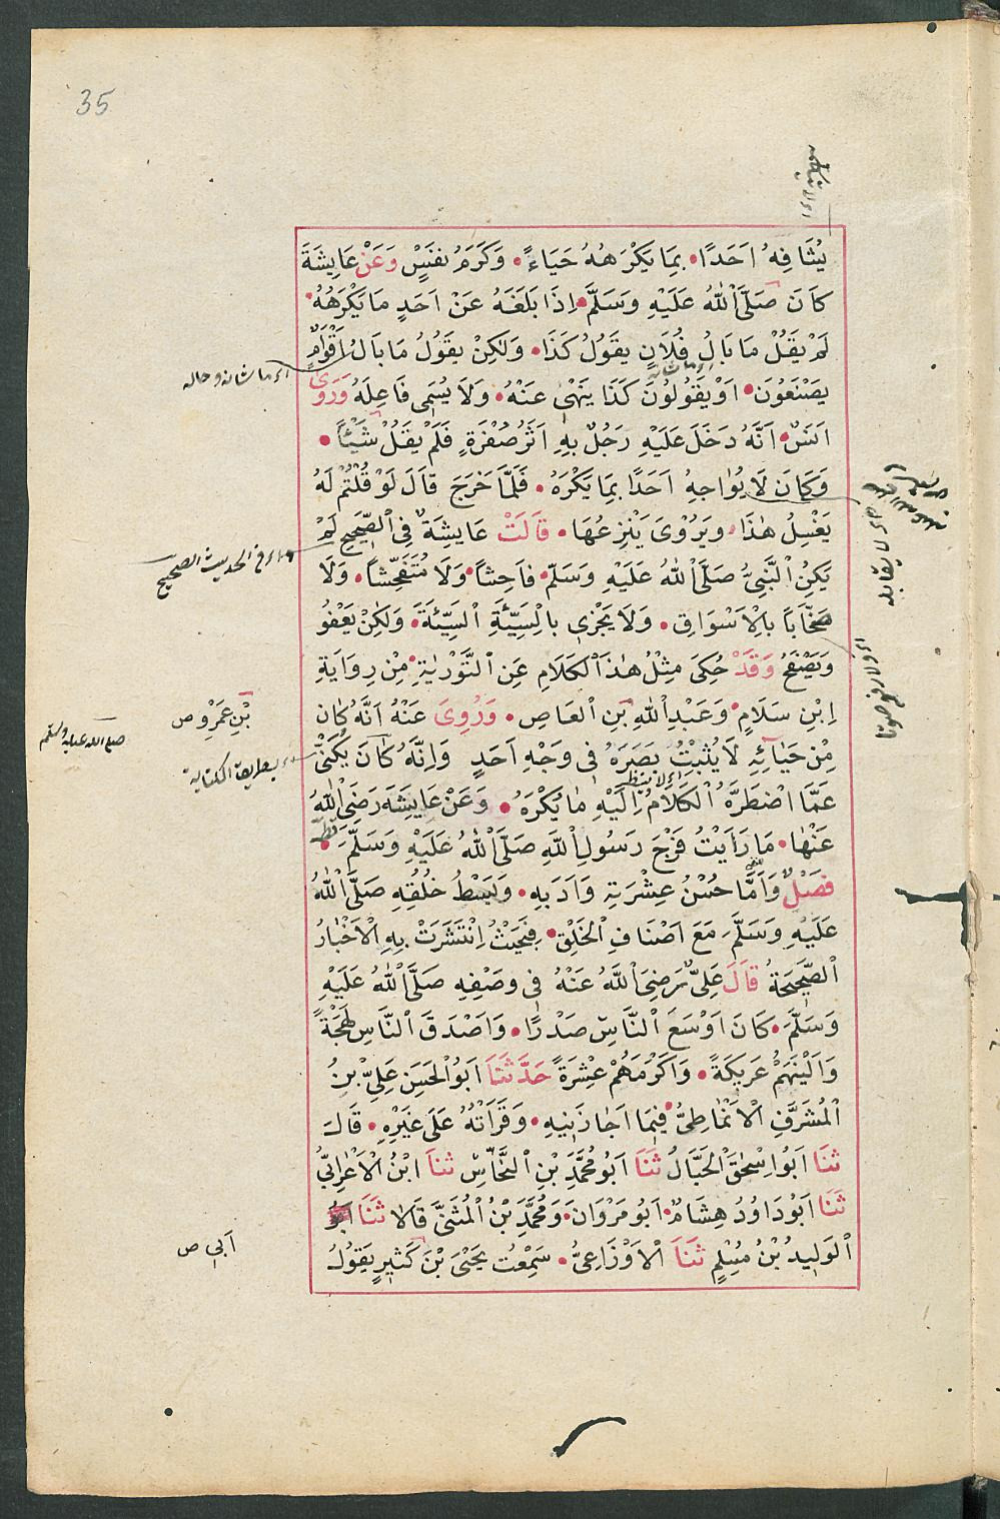 35
يُشَافِهُ اَحَدًا۰ بِمَا يَكْرَهُهُ حَيَاءً۰ وَكَرَمَ نَفْسٍ وَعَنْ عَايِشَةَ
كَانَ صَلَّى اللهُ عَلَيْهِ وَسَلَّمَ۰ اِذَا بَلَغَهُ عَنْ اَحَدٍ مَا يَكْرَهُهُ۰
لَمْ يَقُلْ مَا بَالُ فُلَانٍ يَقُولُ كَذَا۰ وَلٰكِنْ يَقُولُ مَا بَالُ اَقْوَامٍ
اى ما شانه وحاله
يَصْنَعُونَ۰ اَوْ يَقُولُونَ كَذَا يَنْهٰى عَنْهُ۰ وَلَا يُسَمِّى فَاعِلَهُ وَرَوٰى
اَنَسٌ۰ اَنَّهُ دَخَلَ عَلَيْهِ رَجُلٌ بِهِ اَثَرُ صُفْرَةٍ فَلَمْ يَقُلْ شَيْئًا۰
وَكَانَ لَا يُوَاجِهُ اَحَدًا بِمَا يَكْرَهُ۰ فَلَمَّا خَرَجَ قَالَ لَوْ قُلْتُمْ لَهُ
اى لا يقابله
يَغْسِلُ هٰذَا۰ وَيَرْوٰى يَنْزِعُهَا۰ قَالَتْ عَايِشَةُ فِى الصَّحِيحِ لَمْ
اى فى الحديث الصحيح
يَكُنِ النَّبِىُّ صَلَّى اللهُ عَلَيْهِ وَسَلَّمَ۰ فَاحِشًا۰ وَلَا مُتَفَحِّشًا۰ وَلَا
صَخَّابًا بِالْاَسْوَاقِ۰ وَلَا يَجْزِى بِالسَّيِّئَةِ السَّيِّئَةَ۰ وَلٰكِنْ يَعْفُو
اى ولا رافع صوتا
وَيَصْفَحُ وَقَدْ حُكِىَ مِثْلُ هٰذَا الْكَلَامِ عَنِ التَّوْرٰيةِ۰ مِنْ رِوَايَةِ
اِبْنِ سَلَامٍ۰ وَعَبْدِ اللهِ بْنِ الْعَاصِ۰ وَرُوِىَ عَنْهُ اَنَّهُ كَانَ
بْنِ عَمْرٍو ص
صلى الله عليه وسلم
مِنْ حَيَائِهِ لَا يُثْبِتُ بَصَرَهُ فِى وَجْهِ اَحَدٍ وَاِنَّهُ كَانَ يُكَنِّى
اى بطريق الكناية
عَمَّا اضْطَرَّهُ الْكَلَامُ اِلَيْهِ مَا يُكْرَهُ۰ وَعَنْ عَايِشَةَ رَضِىَ اللهُ
عَنْهَا۰ مَا رَاَيْتُ فَرْجَ رَسُولِ اللهِ صَلَّى اللهُ عَلَيْهِ وَسَلَّمَ قَطُّ۰
فَصْلٌ وَاَمَّا حُسْنُ عِشْرَتِهِ وَاَدَبِهِ۰ وَبَسْطُ خُلُقِهِ صَلَّى اللهُ
عَلَيْهِ وَسَلَّمَ مَعَ اَصْنَافِ الْخَلْقِ۰ فَبِحَيْثُ انْتَشَرَتْ بِهِ الْاَخْبَارُ
الصَّحِيحَةُ قَالَ عَلِىٌّ رَضِىَ اللهُ عَنْهُ فِى وَصْفِهِ صَلَّى اللهُ عَلَيْهِ
وَسَلَّمَ۰ كَانَ اَوْسَعَ النَّاسِ صَدْرًا۰ وَاَصْدَقَ النَّاسِ لَهْجَةً
وَاَلْيَنَهُمْ عَرِيكَةً۰ وَاَكْرَمَهُمْ عِشْرَةً حَدَّثَنَا اَبُو الْحَسَنِ عَلِىُّ بْنُ
الْمُشَرَّفِ الْاَنْمَاطِىُّ۰ فِيمَا اَجَازَنِيهِ۰ وَقَرَاْتُهُ عَلَى غَيْرِهِ۰ قَالَ
ثَنَا اَبُو اِسْحٰقَ الْحَبَّالُ ثَنَا اَبُو مُحَمَّدِ بْنِ النَّحَّاسِ ثَنَا ابْنُ الْاَعْرَابِىِّ
ثَنَا اَبُو دَاوُدَ هِشَامٌ۰ اَبُو مَرْوَانَ۰ وَمُحَمَّدُ بْنُ الْمُثَنَّى قَالَا ثَنَا
الْوَلِيدُ بْنُ مُسْلِمٍ ثَنَا الْاَوْزَاعِىُّ۰ سَمِعْتُ يَحْيَى بْنَ كَثِيرٍ يَقُولُ
اَبِى ص